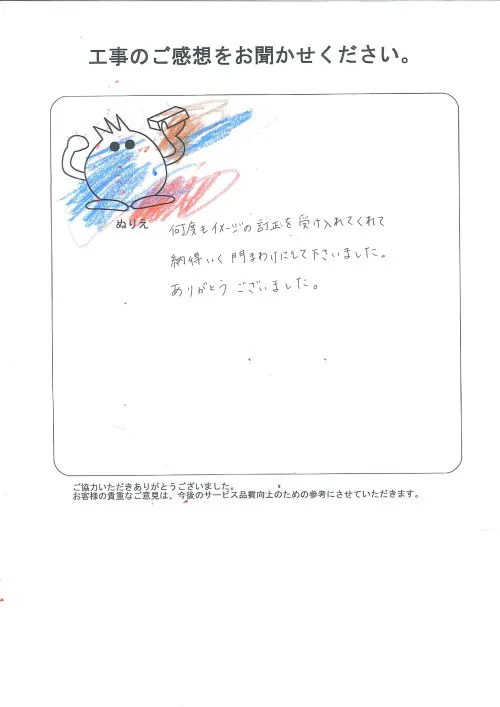 工事のご感想をお聞かせください。
ぬりえ
何度もイメージの訂正を受け入れてくれて
納得いく門まわりにして下さいました。
ありがとうございました。
ご協力いただきありがとうございました。
お客様の貴重なご意見は、今後のサービス品質向上のための参考にさせていただきます。